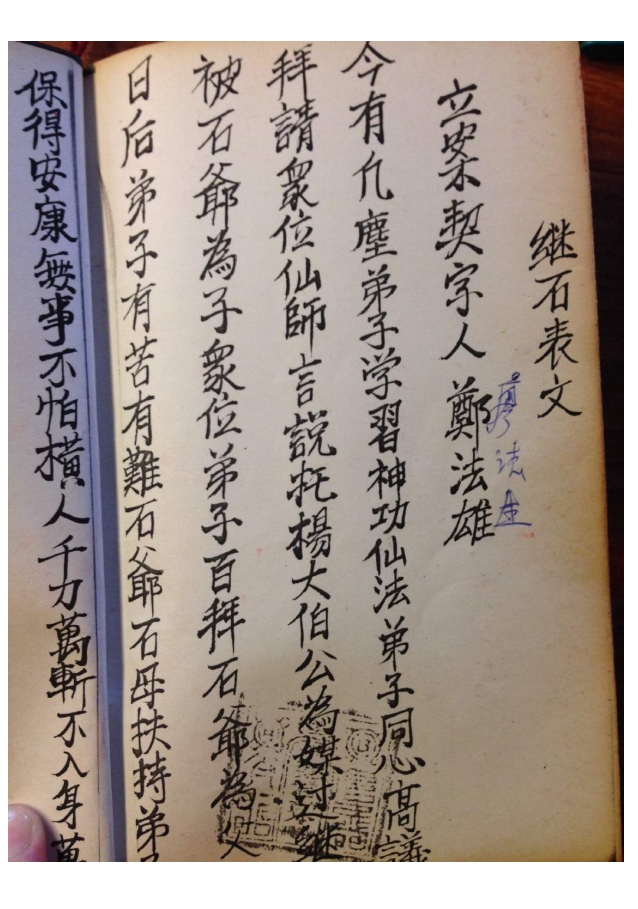 继石表文
立案契字人 鄭法雄
廖法
今有凢塵弟子学習神功仙法弟子同心高議
拜請眾位仙師言説托楊大伯公為媒过继
被石爺為子眾位弟子百拜石爺為父
日后弟子有苦有難石爺石母扶持弟
保得安康無事不怕横人千力萬斬不入身萬